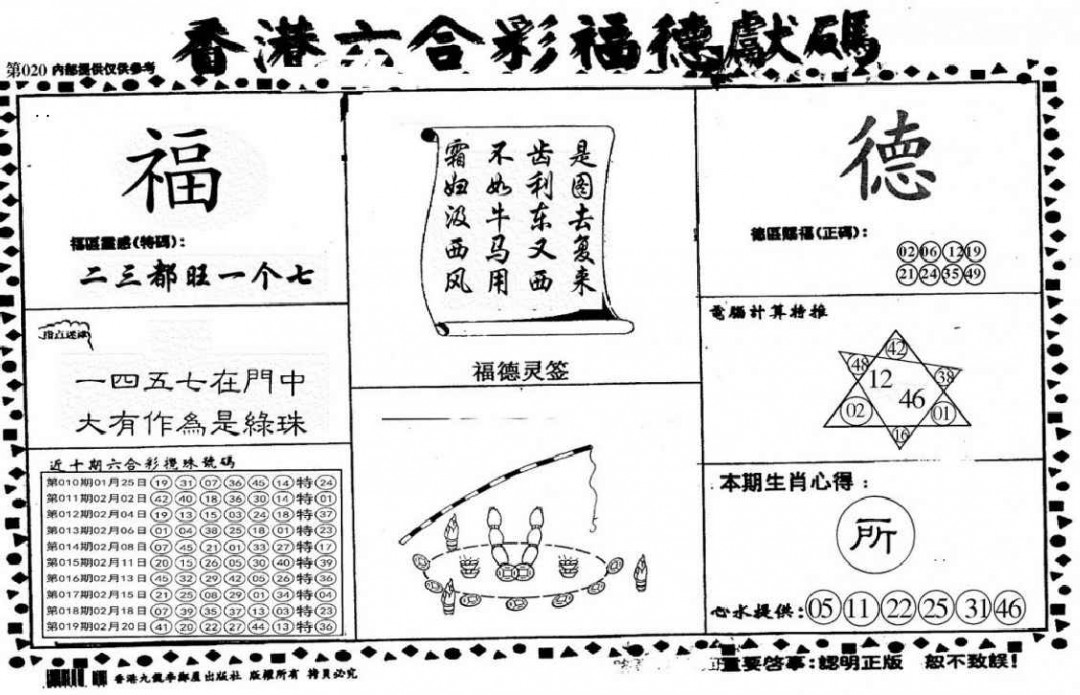 香港六合彩福德獻碼
第020 内部提供仅供参考
福
福區靈感(特碼):
二三都旺一个七
指点迷津
一四五七在門中
大有作為是綠珠
近十期六合彩攪珠號碼
第010期01月25日 19 31 07 36 45 14 特 24
第011期02月02日 42 40 18 36 30 14 特 01
第012期02月04日 19 13 15 03 24 18 特 37
第013期02月06日 01 04 38 25 18 01 特 23
第014期02月08日 07 45 21 01 33 27 特 17
第015期02月11日 20 15 26 05 30 40 特 39
第016期02月13日 45 32 29 42 05 26 特 36
第017期02月15日 21 25 08 29 01 34 特 04
第018期02月18日 07 39 35 37 13 03 特 23
第019期02月20日 41 20 22 27 44 13 特 36
是图去复来
齿利东又西
不如牛马用
霜妇汲西风
福德灵签
德
德區賜福(正碼):
02 06 12 19
21 24 35 49
電腦計算特推
42
48 38
12 46
02 01
16
本期生肖心得:
所
心水提供: 05 11 22 25 31 46
香港九龍李鄭屋出版社 版權所有 拷貝必究
重要啓事:認明正版 恕不致誤!